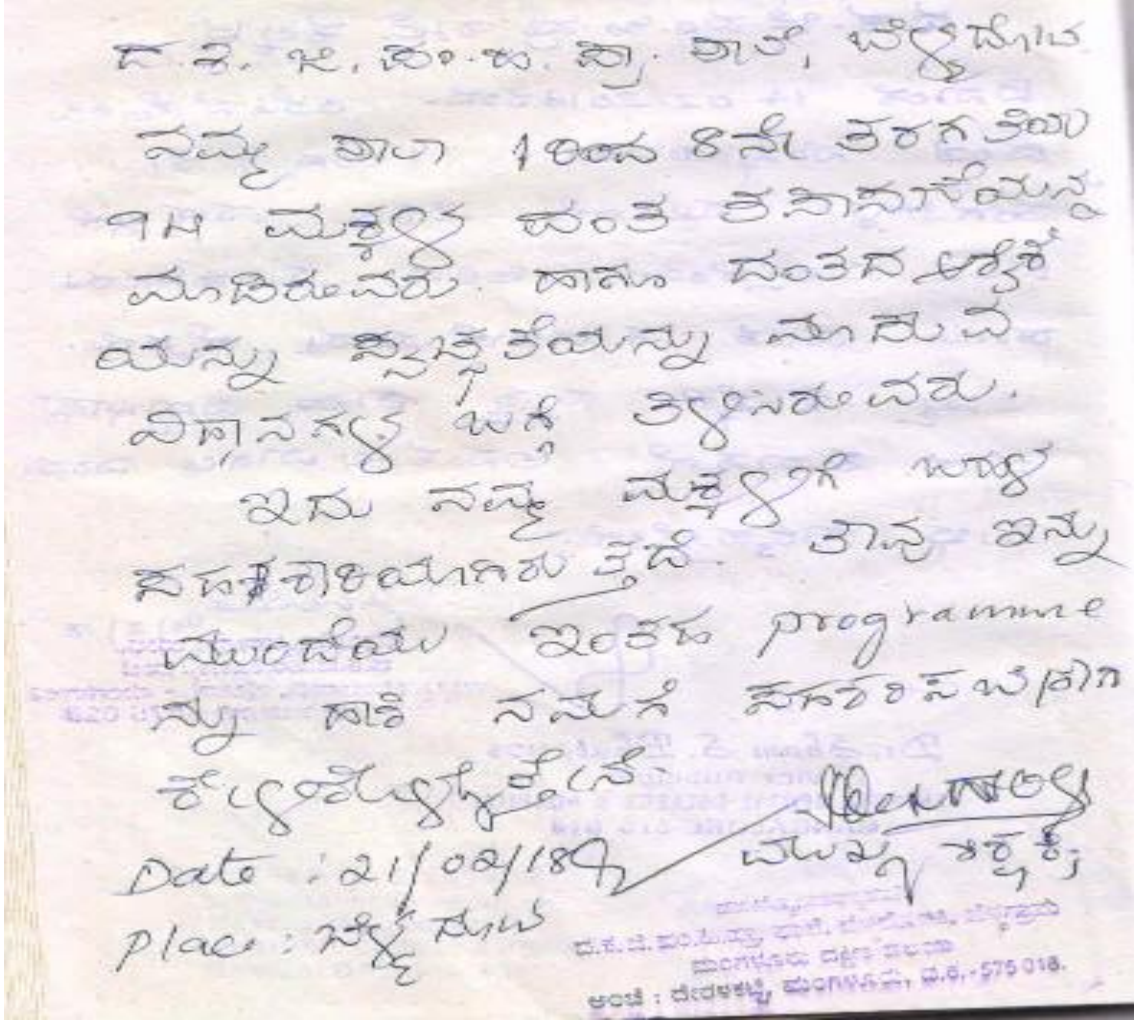 ದ.ಕ. ಜಿ. ಪಂ.ಹಿ. ಪ್ರಾ. ಶಾಲೆ,
ನಮ್ಮ ಶಾಲಾ 1 ರಿಂದ 8ನೇ ತರಗತಿಯ
ಮಕ್ಕಳ ದಂತ ತಪಾಸಣೆಯನ್ನು
ಮಾಡಿರುವರು. ಹಾಗೂ ದಂತದ
ಯನ್ನು ಸ್ವಚ್ಛತೆಯನ್ನು ಮಾಡುವ
ವಿಧಾನಗಳ ಬಗ್ಗೆ ತಿಳಿಸಿರುವರು.
ಇದು ನಮ್ಮ ಮಕ್ಕಳಿಗೆ ಬಹಳ
ಸಹಕಾರಿಯಾಗಿರುತ್ತದೆ. ತಾವು ಇನ್ನು
ಮುಂದೆಯು ಇಂತಹ programme
ನ್ನು ಹಾಕಿ ನಮಗೆ ಸಹಕರಿಸಬೇಕಾಗಿ
ಕೇಳಿಕೊಳ್ಳುತ್ತೇನೆ.
Date : 21/02/18
ಮುಖ್ಯ ಶಿಕ್ಷಕಿ
Place :
ದ.ಕ.ಜಿ.ಪಂ.ಹಿ.ಪ್ರಾ. ಶಾಲೆ,
ಮಂಗಳೂರು ದಕ್ಷಿಣ ವಲಯ
ಅಂಚೆ : ದೇರಳಕಟ್ಟೆ, ಮಂಗಳೂರು, ದ.ಕ.-575 018.